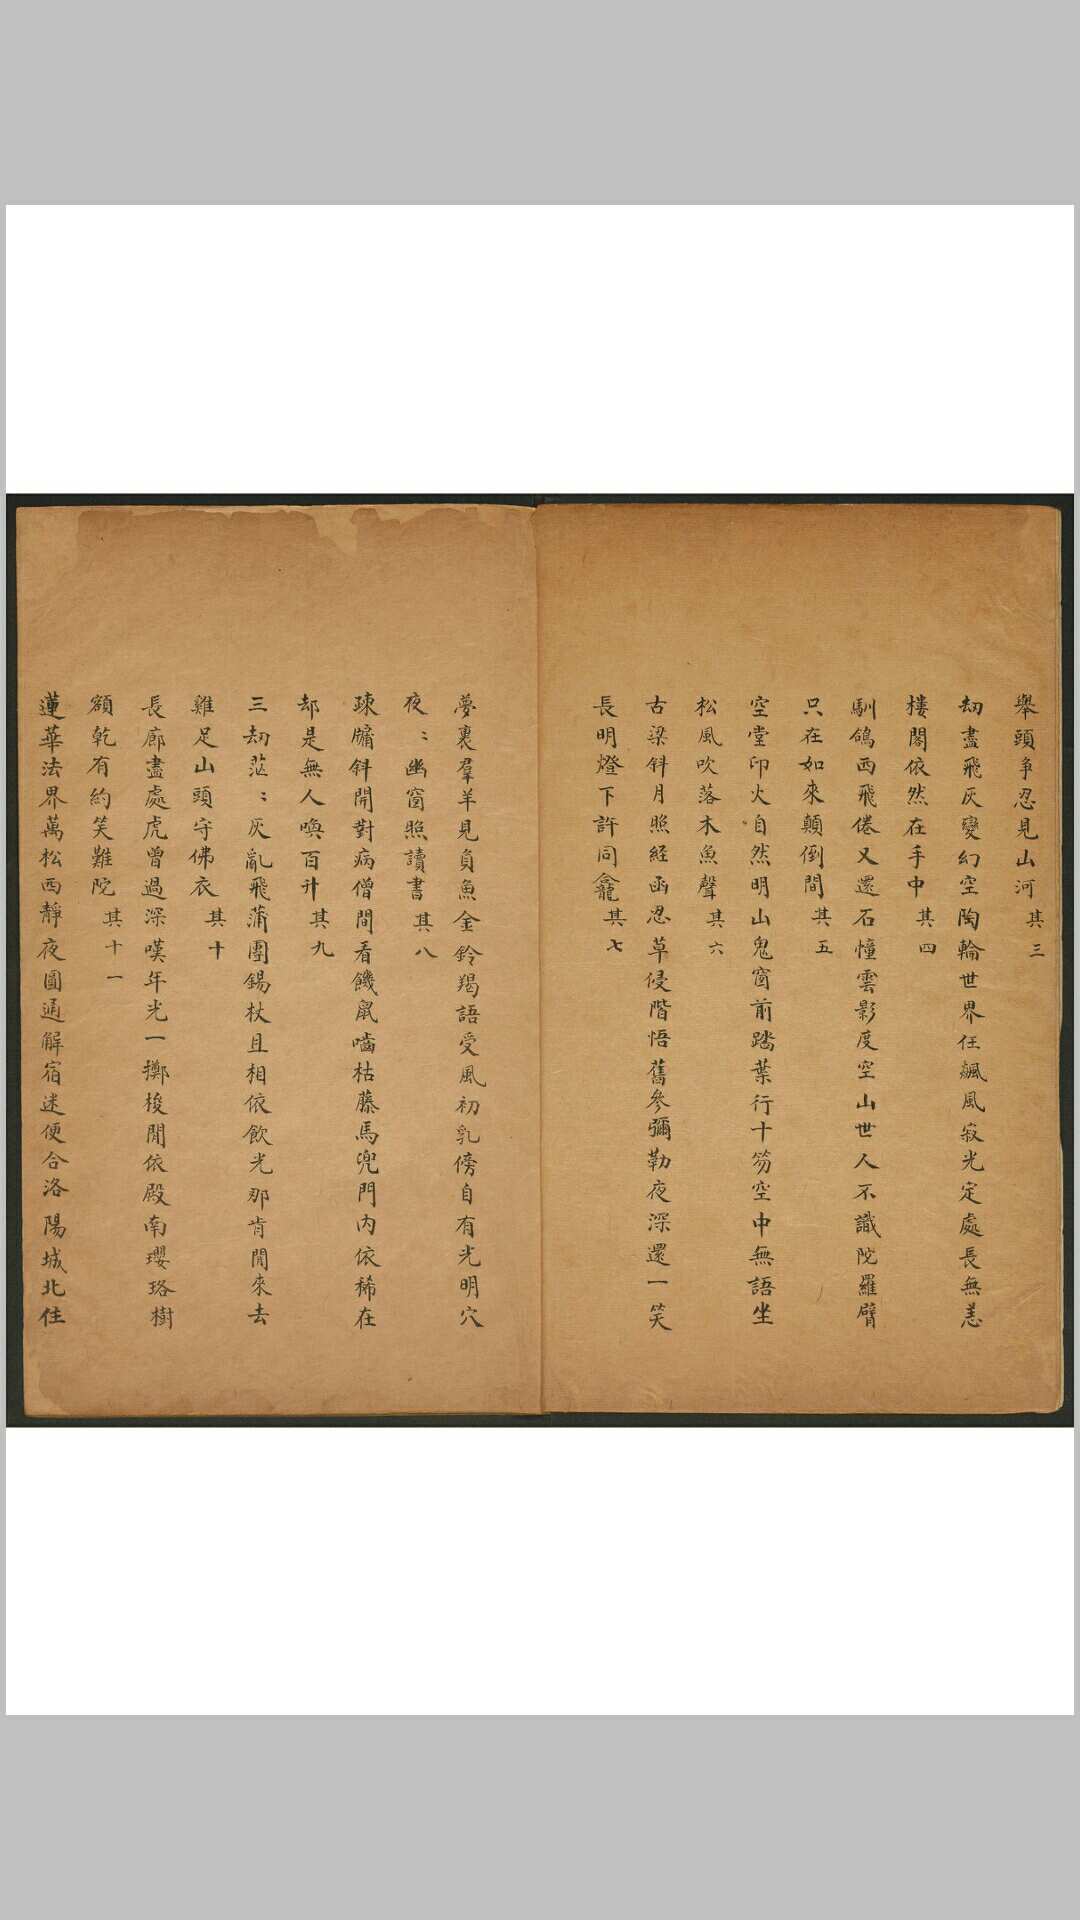 舉頭爭忍見山河 其三
劫盡飛灰變幻空陶輪世界任飄風寂光定處長無恙
樓閣依然在手中 其四
馴鴿西飛倦又還石幢雲影度空山世人不識陀羅臂
只在如來顛倒間 其五
空堂印火自然明山鬼窗前踏葉行十笏空中無語坐
松風吹落木魚聲 其六
古梁斜月照經函忍草侵階悟舊參彌勒夜深還一笑
長明燈下許同龕 其七
夢裏羣羊見負魚金鈴羯語受風初乳傍自有光明穴
夜〻幽窗照讀書 其八
疎牖斜開對病僧間看饑鼠嚙枯藤馬兜門內依稀在
却是無人喚百升 其九
三劫茫〻灰亂飛蒲團錫杖且相依飲光那肯閒來去
雞足山頭守佛衣 其十
長廊盡處虎曾過深嘆年光一擲梭閒依殿南瓔珞樹
額乾有約笑難陀 其十一
蓮華法界萬松西靜夜圓通解宿迷便合洛陽城北住